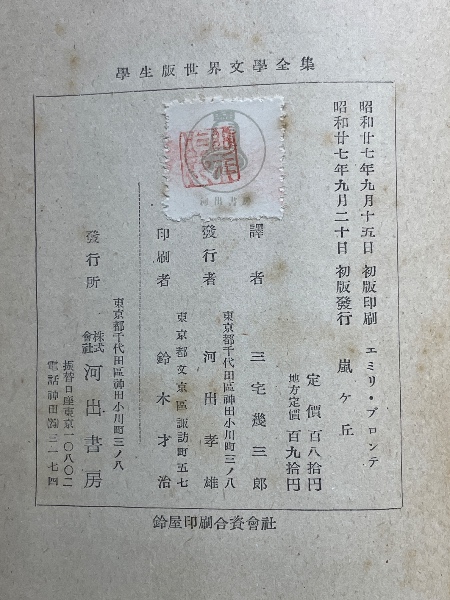 學生版世界文學全集
昭和廿七年九月十五日 初版印刷
昭和廿七年九月二十日 初版發行
エミリ・ブロンテ
嵐ヶ丘
定價 百八拾円
地方定價 百九拾円
譯者 三宅幾三郎
東京都千代田區神田小川町三ノ八
發行者 河出孝雄
東京都文京區諏訪町五七
印刷者 鈴木才治
東京都千代田區神田小川町三ノ八
發行所 株式會社 河出書房
振替口座東京一〇八〇二
電話神田(25)三一七四
河出書房
鈴屋印刷合資會社